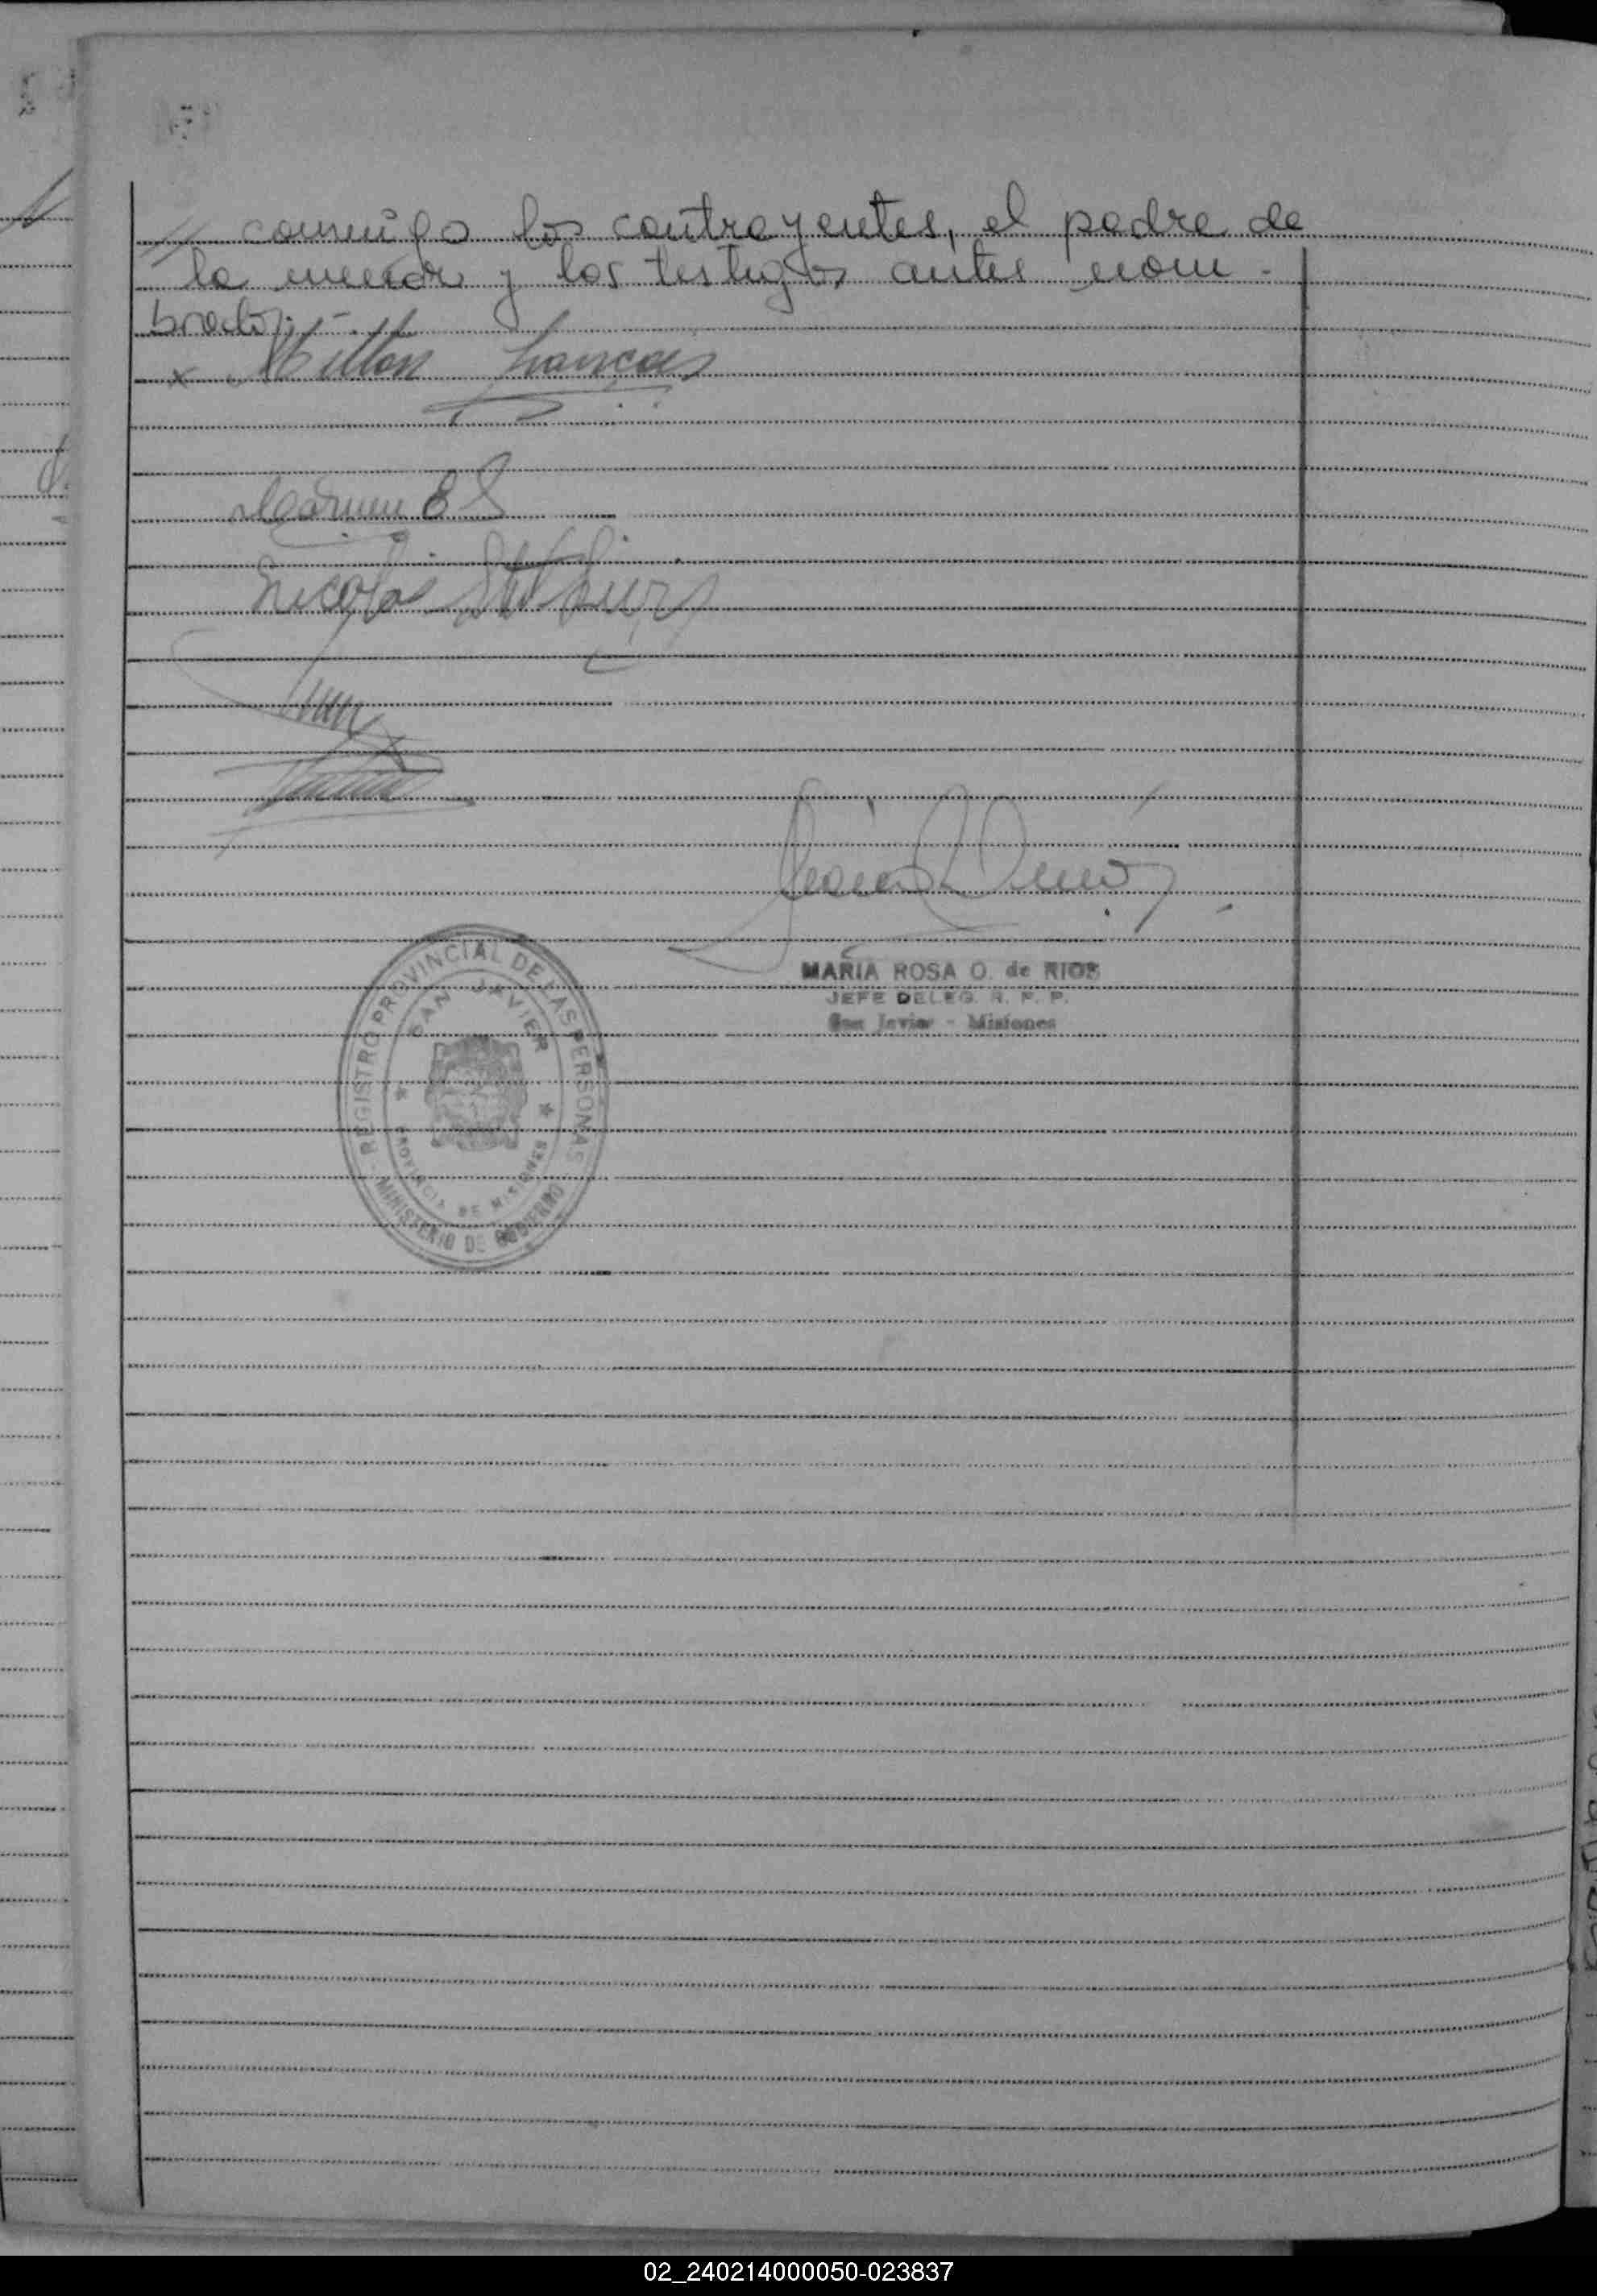 // conmigo los contrayentes, el padre de
la menor y los testigos antes nom-
brados.-
x Milton
Carmen E S
Nicolas
MARIA ROSA O. de RIOS
JEFE DELEG. R. P. P.
San Javier - Misiones
REGISTRO PROVINCIAL DE LAS PERSONAS
SAN JAVIER
PROVINCIA DE MISIONES
MINISTERIO DE GOBIERNO
02_240214000050-023837